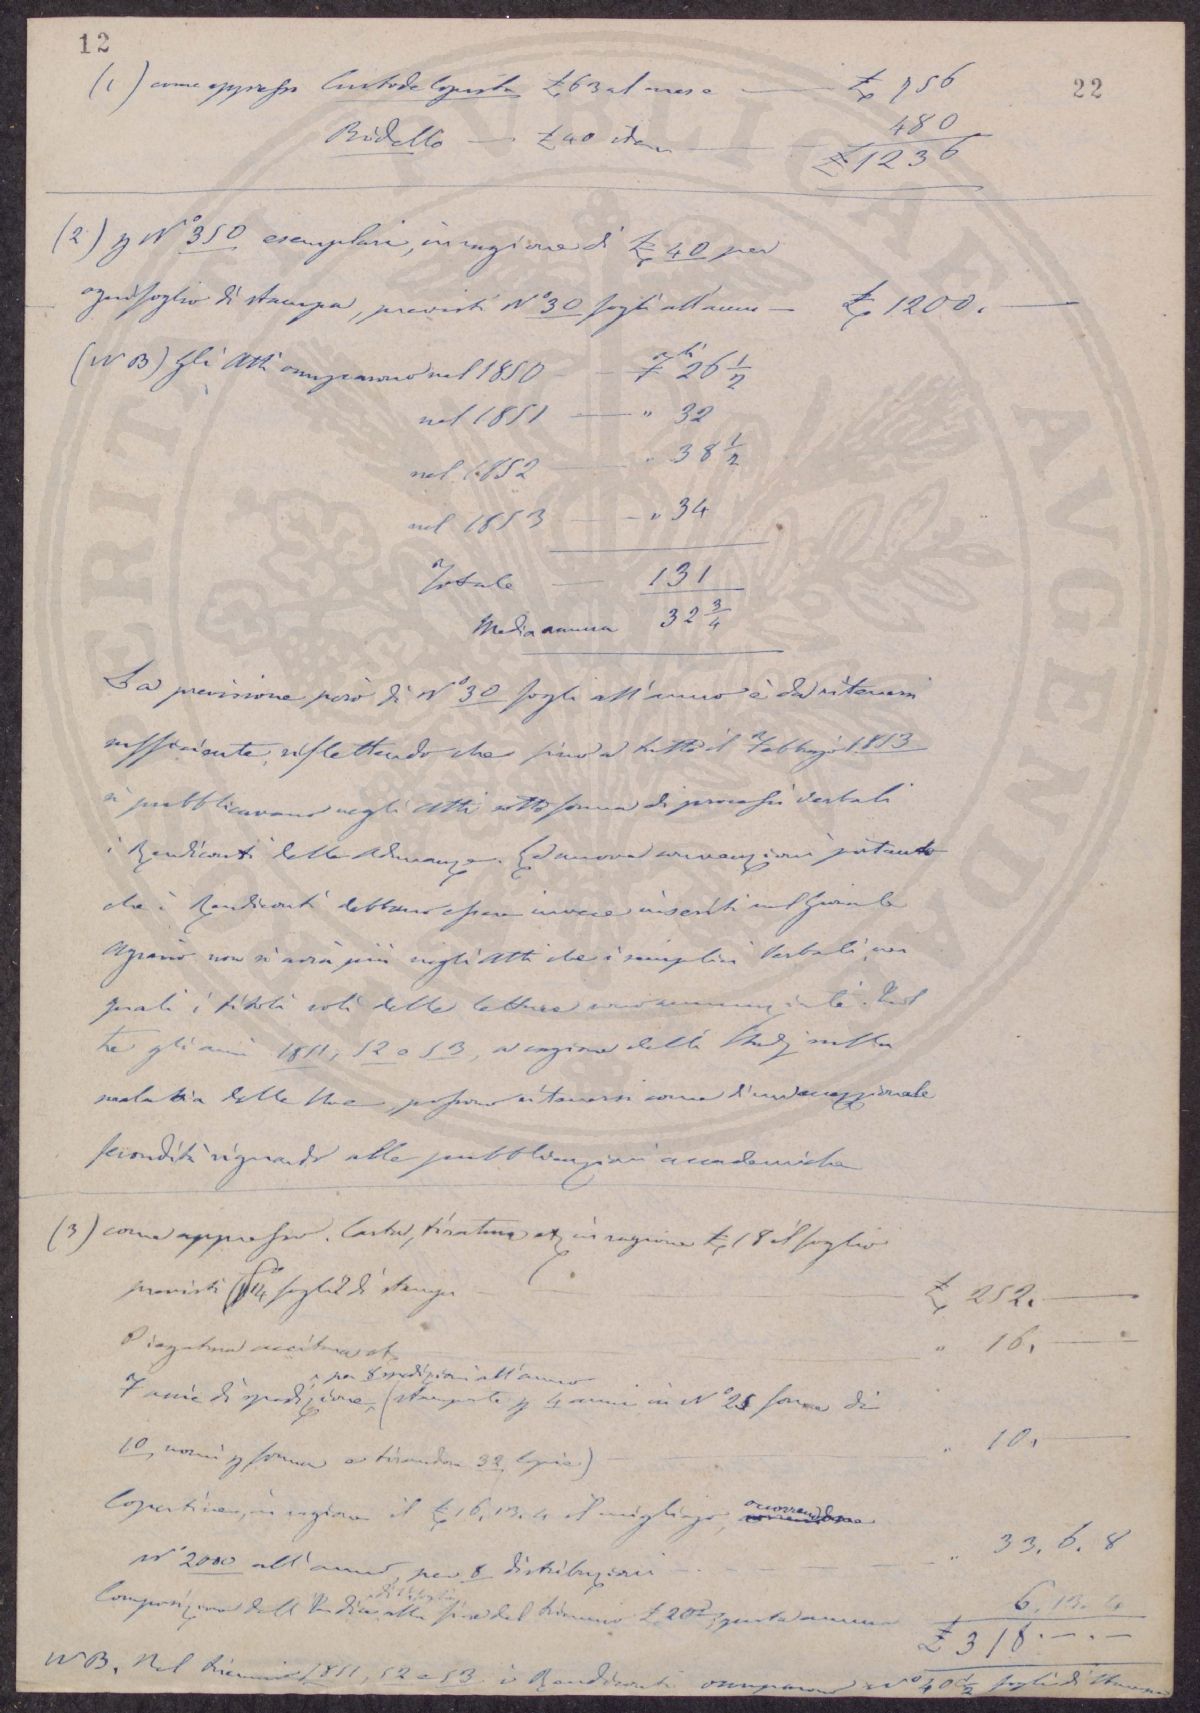 12
22
(1) come appresso Custode Copista £ 63 al mese £ 756
Bidello £ 40 idem 480
£ 1236
(2) p N° 350 esemplari, in ragione di £ 40 per
ogni foglio di stampa, previsti N° 30 fogli all'anno £ 1200.
(NB) Gli Atti occuparono nel 1850 Fogli 26 1/2
nel 1851 " 32
nel 1852 " 38 1/2
nel 1853 " 34
Totale 131
Media annua 32 3/4
La previsione però di N° 30 fogli all'anno è da ritenersi
sufficiente, riflettendo che sino a tutto il Febbrajo 1853
si pubblicavano negli Atti sotto forma di processi verbali
i Rendiconti delle Adunanze. Ed ora convenzioni portando
che i Rendiconti debbano essere invece inseriti nel Giornale
Agrario non si avrà più negli Atti che i semplici Verbali, nei
quali i titoli soli delle letture sono annunziati. Inol
tre gli anni 1851, 52 e 53, a cagione delli Studj sulla
malattia delle Uve, possono ritenersi come di un'eccezionale
fecondità riguardo alle pubblicazioni accademiche
(3) come appresso. Carta, tiratura ec in ragione £ 18 il foglio
previsti 14 fogli di stampa £ 252.
Piegatura cucitura ec " 16.
per 8 spedizioni all'anno
Fascie di spedizione, (stampate p 4 anni in N° 25 forme di
10 nomi p forma e tirandone 32 copie) " 10.
Copertine, in ragione il £ 16.13.4 il migliajo, occorrendone
N° 2000 all'anno, per 8 distribuzioni " 33.6.8
Composizione dell'Indice alla fine del triennio £ 20 quota annua 6.13.4
£ 318
NB. Nel triennio 1851, 52 e 53 i Rendiconti occuparono N° 40 1/2 fogli di stampa